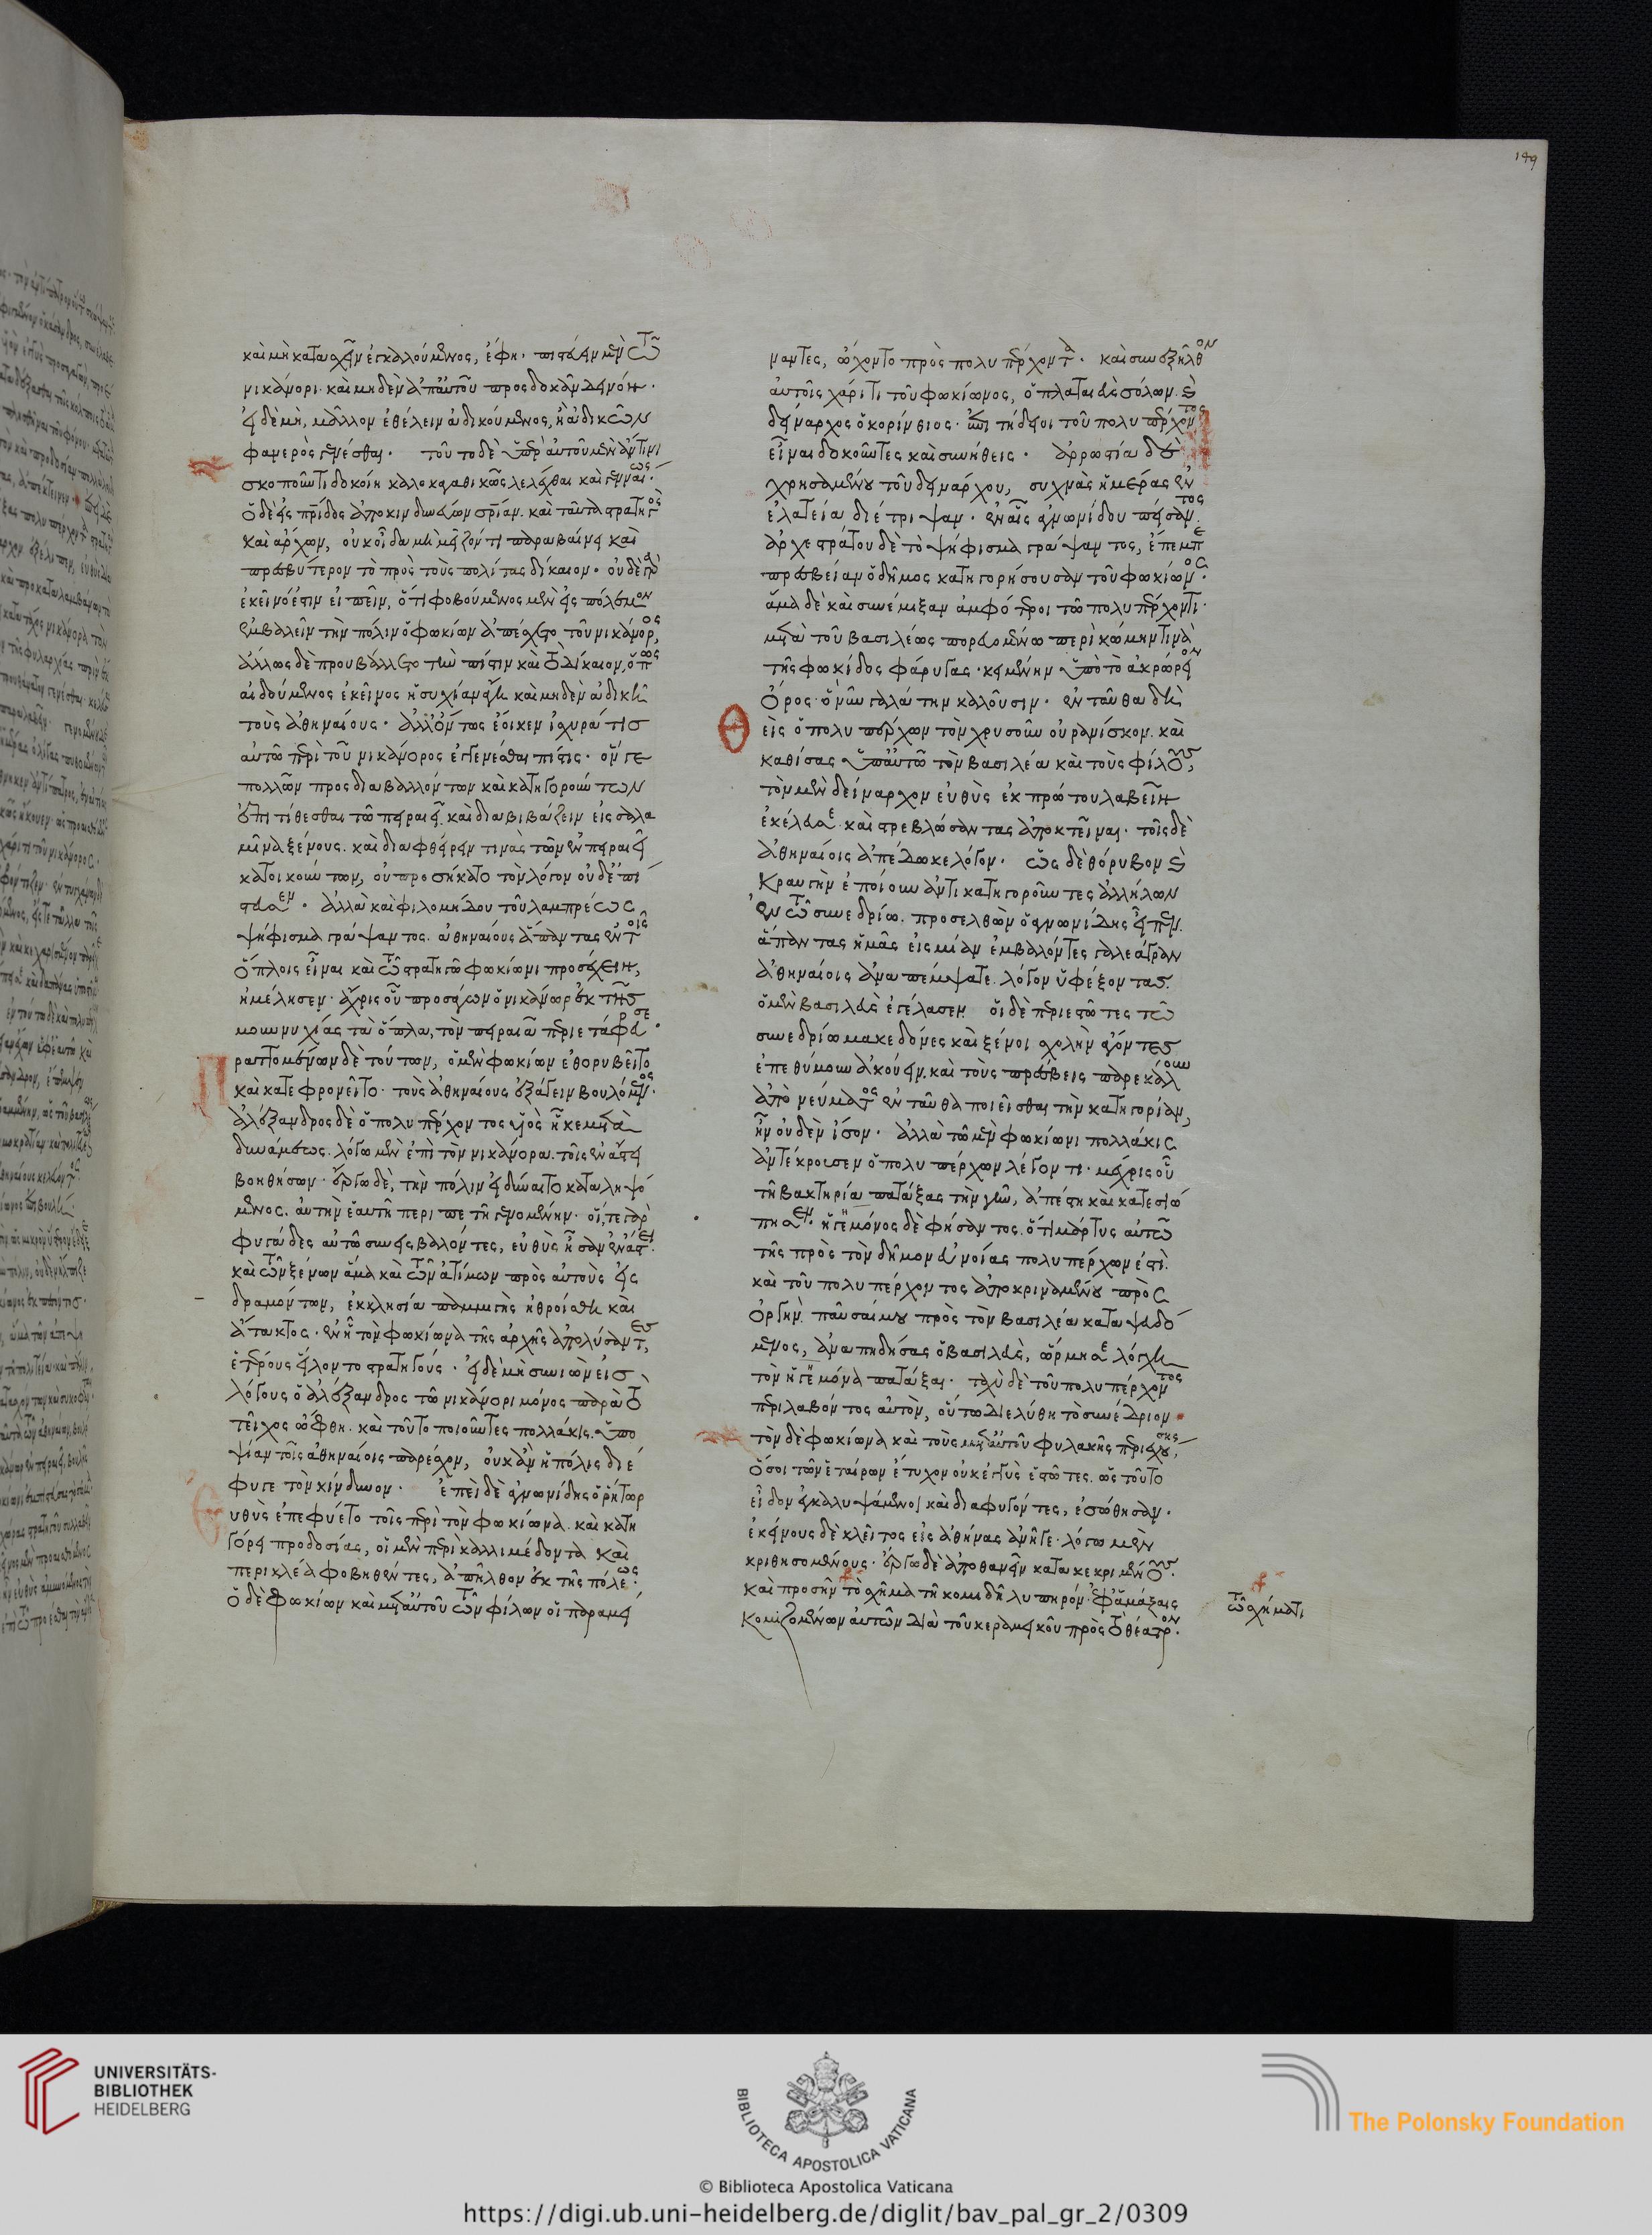 καὶ μὴ κατασχεῖν ἐγκαλούμενος, ἔφη· πιστεύειν μὲν τῶ
νικάνορι· καὶ μηδὲν ἀπ' αὐτοῦ προσδοκᾶν δεινόν·
εἰ δὲ μὴ, μᾶλλον ἐθέλειν ἀδικούμενος, ἢ ἀδικῶν
φανερὸς γενέσθαι· τοῦτο δὲ ὑπὲρ αὐτοῦ μὲν ἄν τινι
σκοποῦντι δοκοίη καλοκαγαθικῶς λελέχθαι καὶ γενναίως·
ὁ δὲ εἰς πρίδος ἀποκινδυνεύων σρίαν. καὶ ταῦτα στρατηγὸς
καὶ ἄρχων, οὐκ οἶδα μὴ μεῖζόν τι παραβαίνει καὶ
πρεσβύτερον τὸ πρὸς τοὺς πολίτας δίκαιον· οὐδὲ γὰρ
ἐκεῖνό ἐστιν εἰπεῖν, ὅτι φοβούμενος μὲν εἰς πόλεμον
ἐμβαλεῖν τὴν πόλιν ὁ φωκίων ἀπέσχετο τοῦ νικάνορος,
ἄλλως δὲ προυβάλλετο τὴν πίστιν καὶ τὸ δίκαιον, ὅπως
αἰδούμενος ἐκεῖνος ἡσυχίαν ἄγη καὶ μηδὲν ἀδικῆ
τοὺς ἀθηναίους· ἀλλ' ὄντως ἔοικεν ἰσχυρά τις
αὐτῶ περὶ τοῦ νικάνορος ἐγγενέσθαι πίστις· ὅν γε
πολλῶν προσδιαβαλλόντων καὶ κατηγορούντων
ἐπιτίθεσθαι τῶ πειραιεῖ. καὶ διαβιβάζειν εἰς σαλα
μῖνα ξένους. καὶ διαφθείρειν τινὰς τῶν ἐν πειραιεῖ
κατοικούντων, οὐ προσήκατο τὸν λόγον οὐδ' ἐπί
στευσεν· ἀλλὰ καὶ φιλομήδου τοῦ λαμπρέως
ψήφισμα γράψαντος. ἀθηναίους ἅπαντας ἐν τοῖς
ὅπλοις εἶναι καὶ τῶ στρατηγῶ φωκίωνι προσέχειν,
ἠμέλησεν· ἄχρις οὗ προσάγων ὁ νικάνωρ ἐκ τῆς
μουνυχίας τὰ ὅπλα, τὸν πειραιᾶ περιετάφρευσε·
Πραττομένων δὲ τούτων, ὁ μὲν φωκίων ἐθορυβεῖτο
καὶ κατεφρονεῖτο· τοὺς ἀθηναίους ἐξάγειν βουλόμενος·
ἀλέξανδρος δὲ ὁ πολυπέρχοντος υἱὸς ἧκε μετὰ
δυνάμεως. λόγω μὲν ἐπὶ τὸν νικάνορα. τοῖς ἐν ἄστει
βοηθήσων· ἔργω δὲ, τὴν πόλιν εἰ δύναιτο καταληψό
μενος. αὐτὴν ἑαυτῆ περιπετῆ γενομένην· οἵ, τε γὰρ
φυγάδες αὐτῶ συνεισβαλόντες, εὐθὺς ἦσαν ἐν ἄστει·
καὶ τῶν ξένων ἅμα καὶ τῶν ἀτίμων πρὸς αὐτοὺς εἰς
δραμόντων, ἐκκλησία παμμιγὴς ἠθροίσθη καὶ
ἄτακτος· ἐν ᾗ τὸν φωκίωνα τῆς ἀρχῆς ἀπολύσαντες,
ἑτέρους εἵλοντο στρατηγούς· εἰ δὲ μὴ συνιὼν εἰς
λόγους ὁ ἀλέξανδρος τῶ νικάνορι μόνος παρὰ τὸ
τεῖχος ὤφθη. καὶ τοῦτο ποιοῦντες πολλάκις. ὑπο
ψίαν τοῖς ἀθηναίοις παρέσχον, οὐκ ἂν ἡ πόλις διέ
φυγε τὸν κίνδυνον· ἐπεὶ δὲ ἁγνωνίδης ὁ ῥήτωρ
εὐθὺς ἐπεφύετο τοῖς περὶ τὸν φωκίωνα. καὶ κατη
γόρει προδοσίας, οἱ μὲν περὶ καλλιμέδοντα καὶ
περικλέα φοβηθέντες, ἀπῆλθον ἐκ τῆς πόλεως·
ὁ δὲ φωκίων καὶ μετ' αὐτοῦ τῶν φίλων οἱ παραμεί
ναντες, ὤχοντο πρὸς πολυπέρχοντα· καὶ συνεξῆλθον
αὐτοῖς χάριτι τοῦ φωκίωνος, ὁ πλαταιεὺς σόλων. καὶ
δείναρχος ὁ κορίνθιος· ἐπιτήδειοι τοῦ πολυπέρχοντος
εἶναι δοκοῦντες καὶ συνήθεις· ἀρρωστία δὲ
χρησαμένου τοῦ δεινάρχου, συχνὰς ἡμέρας ἐν
ἐλατεία διέτριψαν· ἐν αἷς ἁγνωνίδου πείσαντος.
ἀρχεστράτου δὲ τὸ ψήφισμα γράψαντος, ἔπεμπε
πρεσβείαν ὁ δῆμος κατηγορήσουσαν τοῦ φωκίωνος·
ἅμα δὲ καὶ συνέμιξαν ἀμφότεροι τῶ πολυπέρχοντι·
μετὰ τοῦ βασιλέως πορευομένω περὶ κώμην τινὰ
τῆς φωκίδος φάρυγας· κειμένην ὑπὸ τὸ ἀκρώρειον
ὄρος· ὃ νῦν γαλάτην καλοῦσιν· ἐνταῦθα δὴ
Θεὶς ὁ πολυπέρχων τὸν χρυσοῦν οὐρανίσκον. καὶ
καθίσας ὑπ' αὐτῶ τὸν βασιλέα καὶ τοὺς φίλους,
τὸν μὲν δείναρχον εὐθὺς ἐκ πρώτου λαβεῖν
ἐκέλευε καὶ στρεβλώσαντας ἀποκτεῖναι· τοῖς δὲ
ἀθηναίοις ἀπέδωκε λόγον· ὡς δὲ θόρυβον καὶ
κραυγὴν ἐποίουν ἀντικατηγοροῦντες ἀλλήλων
ἐν τῶ συνεδρίω. προσελθὼν ὁ ἁγνωνίδης εἶπεν.
ἅπαντας ἡμᾶς εἰς μίαν ἐμβαλόντες γαλεάγραν
ἀθηναίοις ἀναπέμψατε. λόγον ὑφέξοντας.
ὁ μὲν βασιλεὺς ἐγέλασεν. οἱ δὲ περιεστῶτες τῶ
συνεδρίω μακεδόνες καὶ ξένοι σχολὴν ἄγοντες
ἐπεθύμουν ἀκούειν. καὶ τοὺς πρέσβεις παρεκάλουν
ἀπὸ νεύματος ἐνταῦθα ποιεῖσθαι τὴν κατηγορίαν,
ἦν οὐδὲν ἴσον· ἀλλὰ τῶ μὲν φωκίωνι πολλάκις
ἀντέκρουσεν ὁ πολυπέρχων λέγοντι· μέχρις οὗ
τῆ βακτηρία πατάξας τὴν γῆν, ἀπέστη καὶ κατεσιώ
πησεν· ἡγήμονος δὲ φήσαντος. ὅτι μάρτυς αὐτῶ
τῆς πρὸς τὸν δῆμον εὐνοίας πολυπέρχων ἐστὶ.
καὶ τοῦ πολυπέρχοντος ἀποκριναμένου πρὸς
ὀργὴν. παῦσαί μου πρὸς τὸν βασιλέα καταψευδό
μενος, ἀναπηδήσας ὁ βασιλεὺς, ὥρμησε λόγχη
τὸν ἡγήμονα πατάξαι· ταχὺ δὲ τοῦ πολυπέρχοντος
περιλαβόντος αὐτὸν, οὕτω διελύθη τὸ συνέδριον
τὸν δὲ φωκίωνα καὶ τοὺς μετ' αὐτοῦ φυλακῆς περισχούσης,
ὅσοι τῶν ἑταίρων ἔτυχον οὐκ ἐγγὺς ἑστῶτες. ὡς τοῦτο
εἶδον ἐγκαλυψάμενοι καὶ διαφυγόντες, ἐσώθησαν.
ἐκείνους δὲ κλεῖτος εἰς ἀθήνας ἀνῆγε· λόγω μὲν
κριθησομένους· ἔργω δὲ ἀποθανεῖν κατακεκριμένους.
καὶ προσῆν τὸ σχῆμα τῆ κομιδῆ λυπηρόν· ἐφ' ἁμάξαις
κομιζομένων αὐτῶν διὰ τοῦ κεραμεικοῦ πρὸς τὸ θέατρον.
τῶ σχήματι
149
UNIVERSITÄTS-
BIBLIOTHEK
HEIDELBERG
BIBLIOTECA APOSTOLICA VATICANA
The Polonsky Foundation
© Biblioteca Apostolica Vaticana
https://digi.ub.uni-heidelberg.de/diglit/bav_pal_gr_2/0309